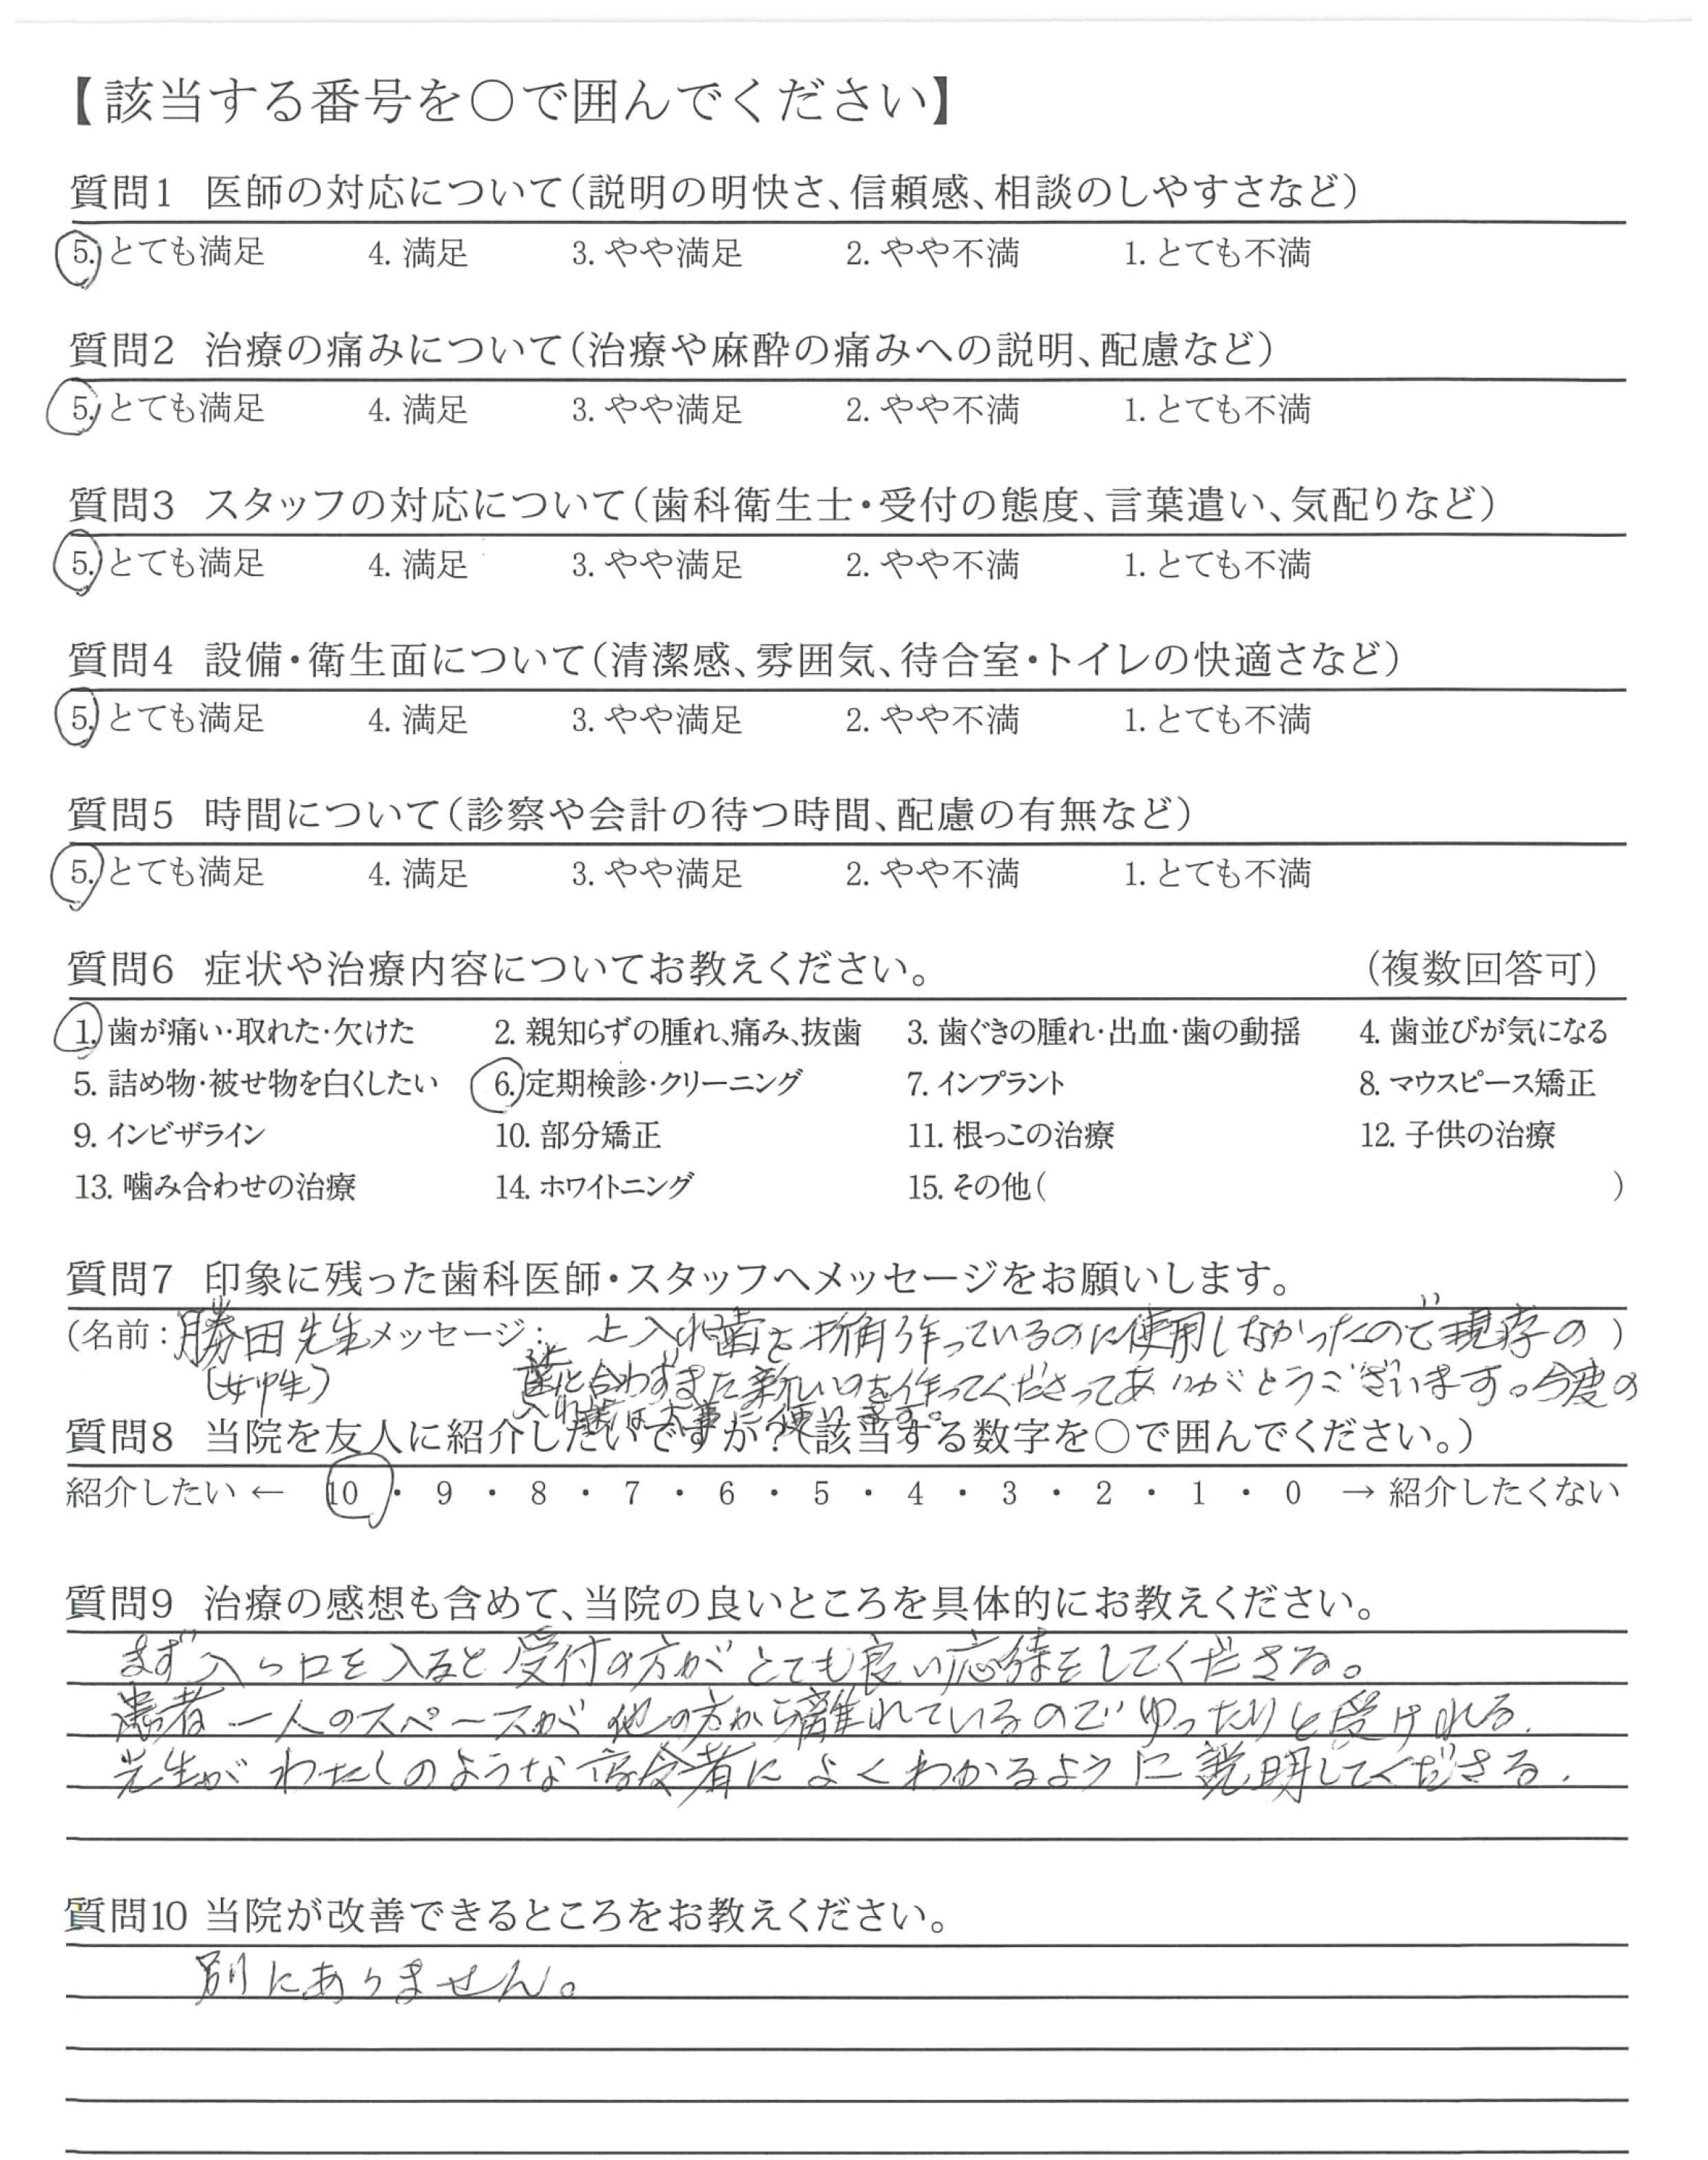 【該当する番号を〇で囲んでください】
質問1 医師の対応について(説明の明快さ、信頼感、相談のしやすさなど)
5. とても満足 4. 満足 3. やや満足 2. やや不満 1. とても不満
質問2 治療の痛みについて(治療や麻酔の痛みへの説明、配慮など)
5. とても満足 4. 満足 3. やや満足 2. やや不満 1. とても不満
質問3 スタッフの対応について(歯科衛生士・受付の態度、言葉遣い、気配りなど)
5. とても満足 4. 満足 3. やや満足 2. やや不満 1. とても不満
質問4 設備・衛生面について(清潔感、雰囲気、待合室・トイレの快適さなど)
5. とても満足 4. 満足 3. やや満足 2. やや不満 1. とても不満
質問5 時間について(診察や会計の待つ時間、配慮の有無など)
5. とても満足 4. 満足 3. やや満足 2. やや不満 1. とても不満
質問6 症状や治療内容についてお教えください。 (複数回答可)
1. 歯が痛い・取れた・欠けた 2. 親知らずの腫れ、痛み、抜歯 3. 歯ぐきの腫れ・出血・歯の動揺 4. 歯並びが気になる
5. 詰め物・被せ物を白くしたい 6. 定期検診・クリーニング 7. インプラント 8. マウスピース矯正
9. インビザライン 10. 部分矯正 11. 根っこの治療 12. 子供の治療
13. 噛み合わせの治療 14. ホワイトニング 15. その他( )
質問7 印象に残った歯科医師・スタッフへメッセージをお願いします。
(名前:勝田先生 メッセージ: 上入れ歯を折角作っているのに使用しなかったので現存の)
(女性) 歯と合わずまた新しいのを作ってくださってありがとうございます。今度の
入れ歯は大事に使います。
質問8 当院を友人に紹介したいですか?(該当する数字を〇で囲んでください。)
紹介したい ← 10 ・ 9 ・ 8 ・ 7 ・ 6 ・ 5 ・ 4 ・ 3 ・ 2 ・ 1 ・ 0 → 紹介したくない
質問9 治療の感想も含めて、当院の良いところを具体的にお教えください。
まず入り口を入ると受付の方がとても良い応待をしてくださる。
患者一人のスペースが他の方から離れているのでゆったりと受けれる.
先生がわたしのような高令者によくわかるように説明してくださる.
質問10 当院が改善できるところをお教えください。
別にありません。